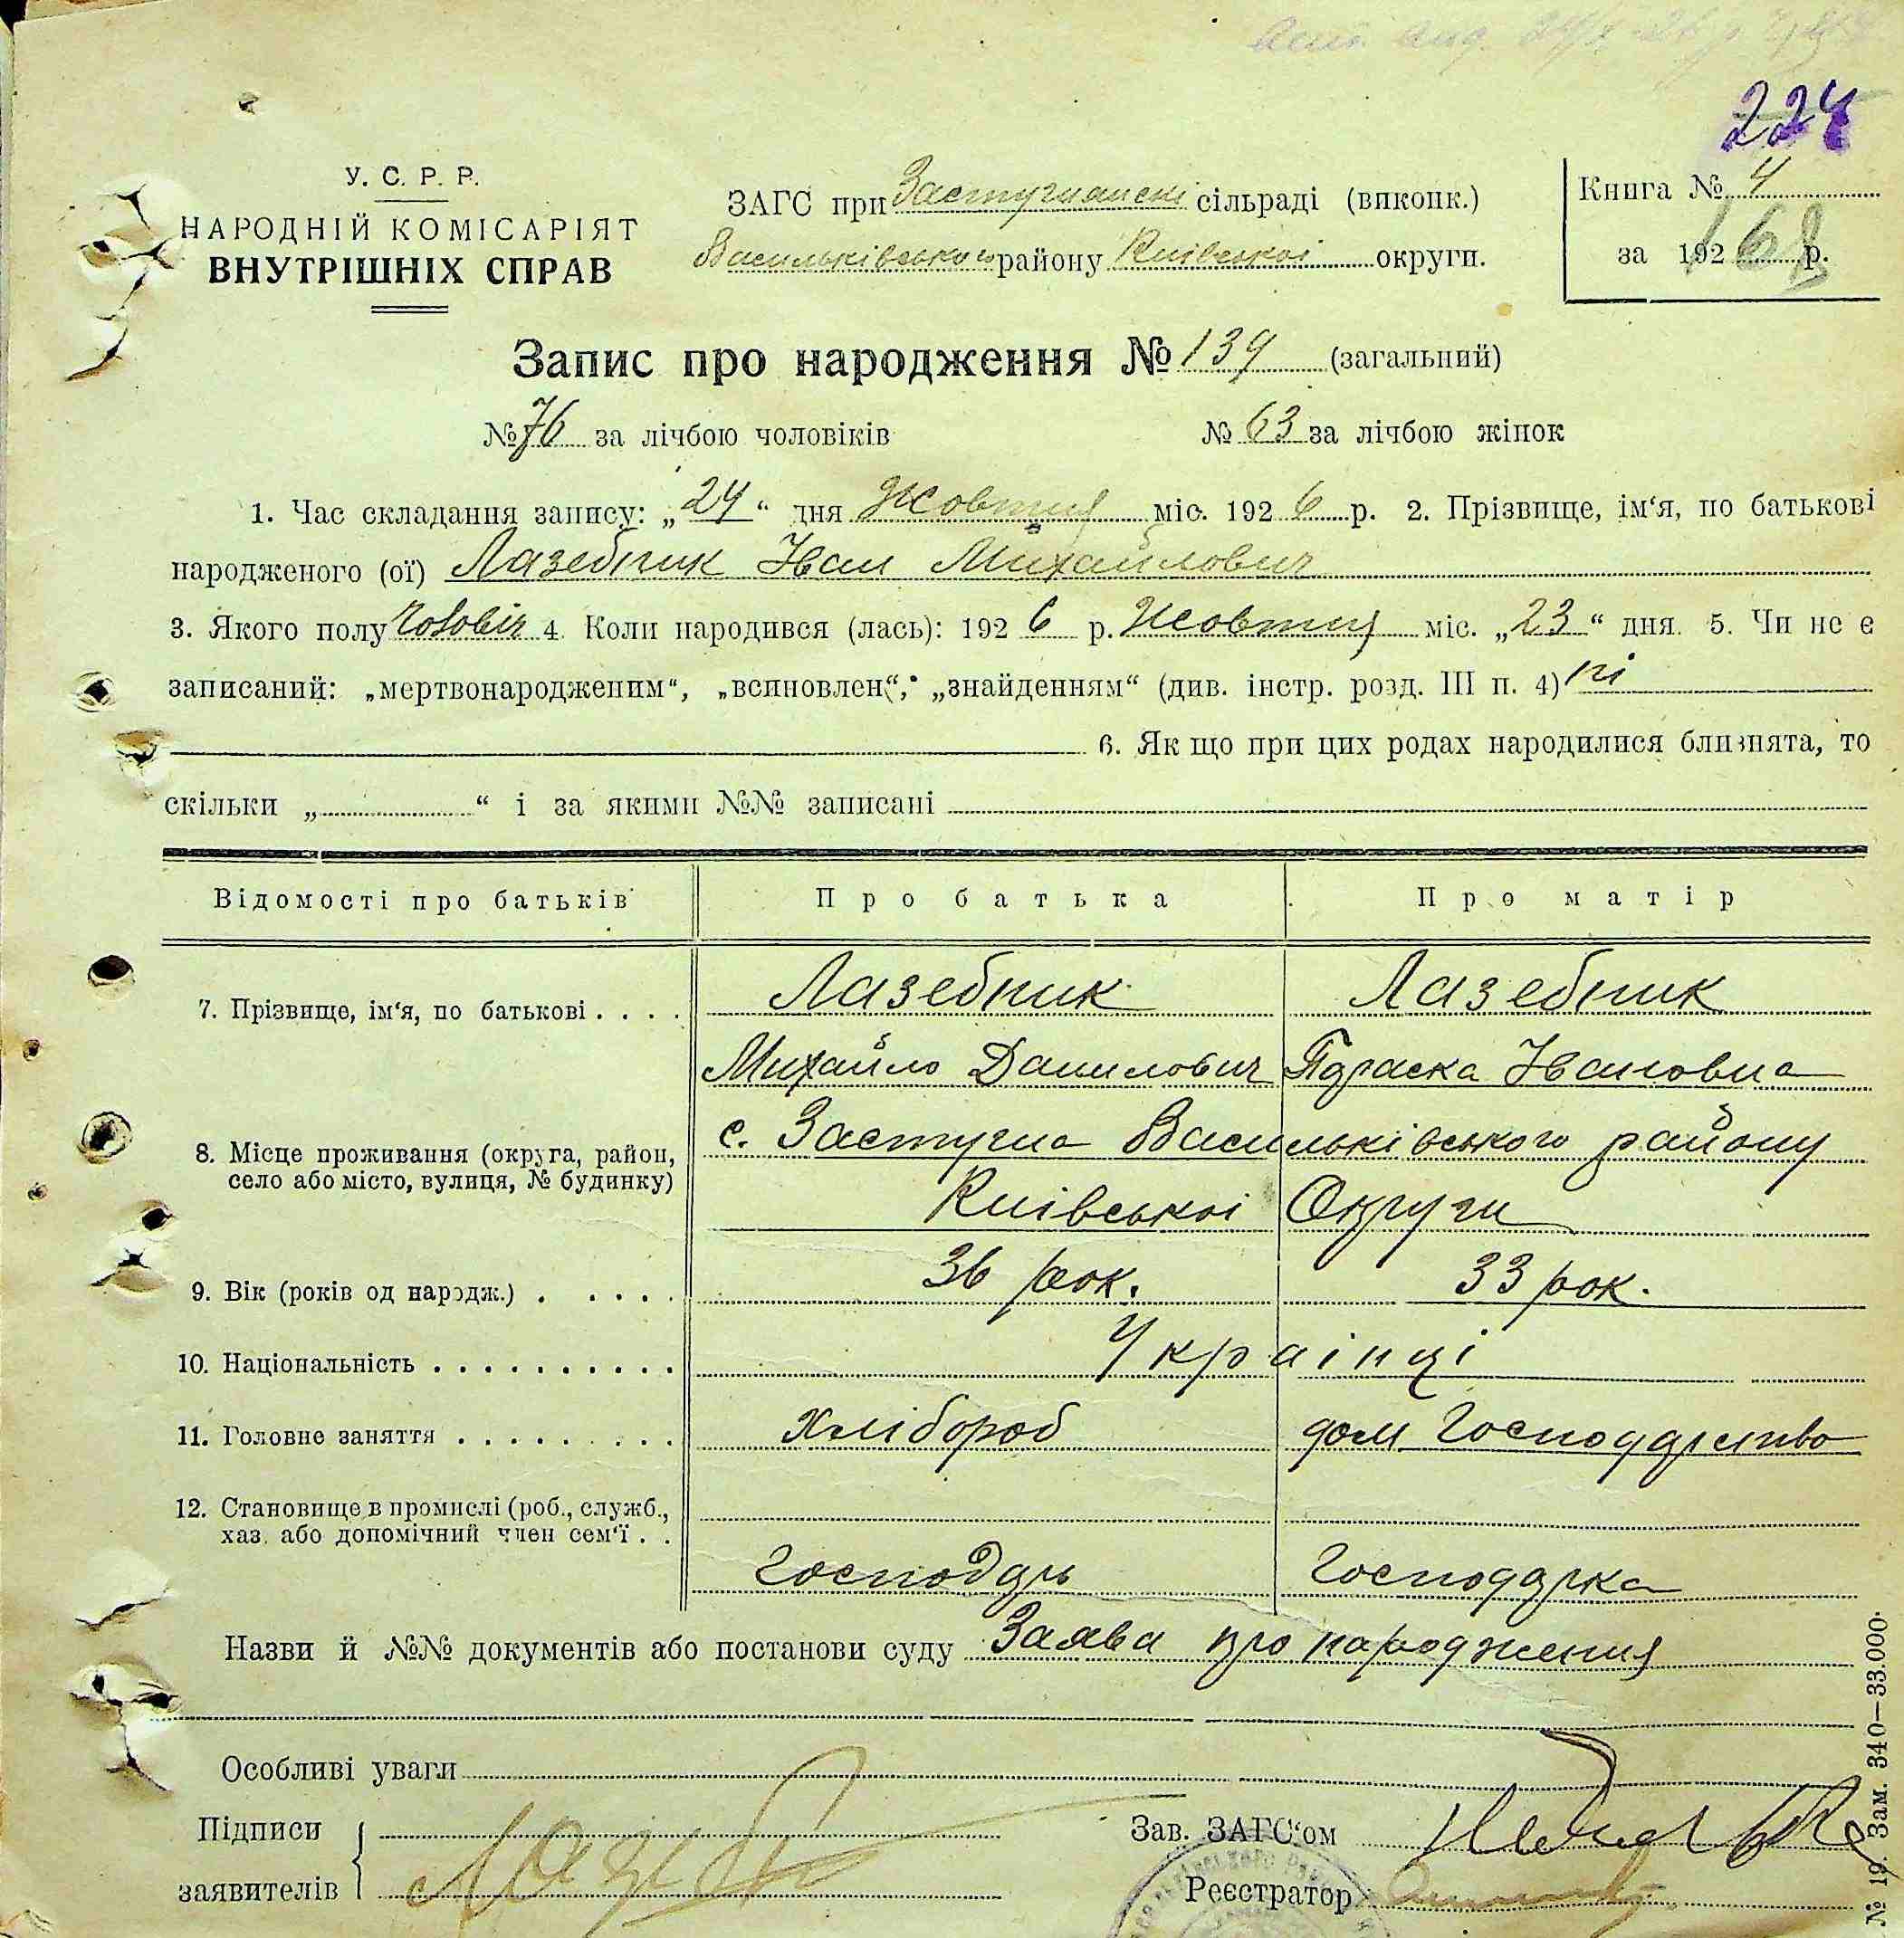 224
У. С. Р. Р.
НАРОДНІЙ КОМІСАРІЯТ
ВНУТРІШНІХ СПРАВ
ЗАГС при Застугнянскі сільраді (виконк.)
Васильківського району Київської округи.
Книга № 4
за 1926 р.
168
Запис про народження № 139 (загальний)
№ 76 за лічбою чоловіків № 63 за лічбою жінок
1. Час складання запису: „24“ дня Жовтня міс. 1926 р. 2. Прізвище, ім‘я, по батькові
народженого (ої) Лазебник Іван Михайлович
3. Якого полу чоловіч 4. Коли народився (лась): 1926 р. Жовтня міс. „23“ дня. 5. Чи не є
записаний: „мертвонародженим“, „всиновлен“, „знайденням“ (див. інстр. розд. III п. 4) ні
6. Як що при цих родах народилися близнята, то
скільки „ “ і за якими №№ записані
Відомості про батьків Про батька Про матір
7. Прізвище, ім‘я, по батькові . . . . Лазебник Лазебник
Михайло Данилович Параска Івановна
8. Місце проживання (округа, район, село або місто, вулиця, № будинку) с. Застугна Васильківського району
Київської Округи
9. Вік (років од народж.) . . . . . 36 рок. 33 рок.
10. Національність . . . . . . . . . . Українці
11. Головне заняття . . . . . . . . . Хлібороб дом Господарство
12. Становище в промислі (роб., служб.,
хаз. або допомічний член сем‘ї . .
Господарь Господарка
Назви й №№ документів або постанови суду Заява про народження
Особливі уваги
Підписи
заявителів
Зав. ЗАГС‘ом
Реєстратор
№ 19. Зам. 340—33.000.